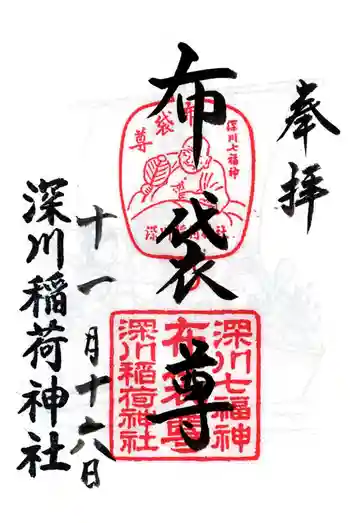 奉拝
布袋尊
十一月十六日
深川稲荷神社
布袋尊
深川七福神
深川稲荷神社
深川七福神
布袋尊
深川稲荷神社